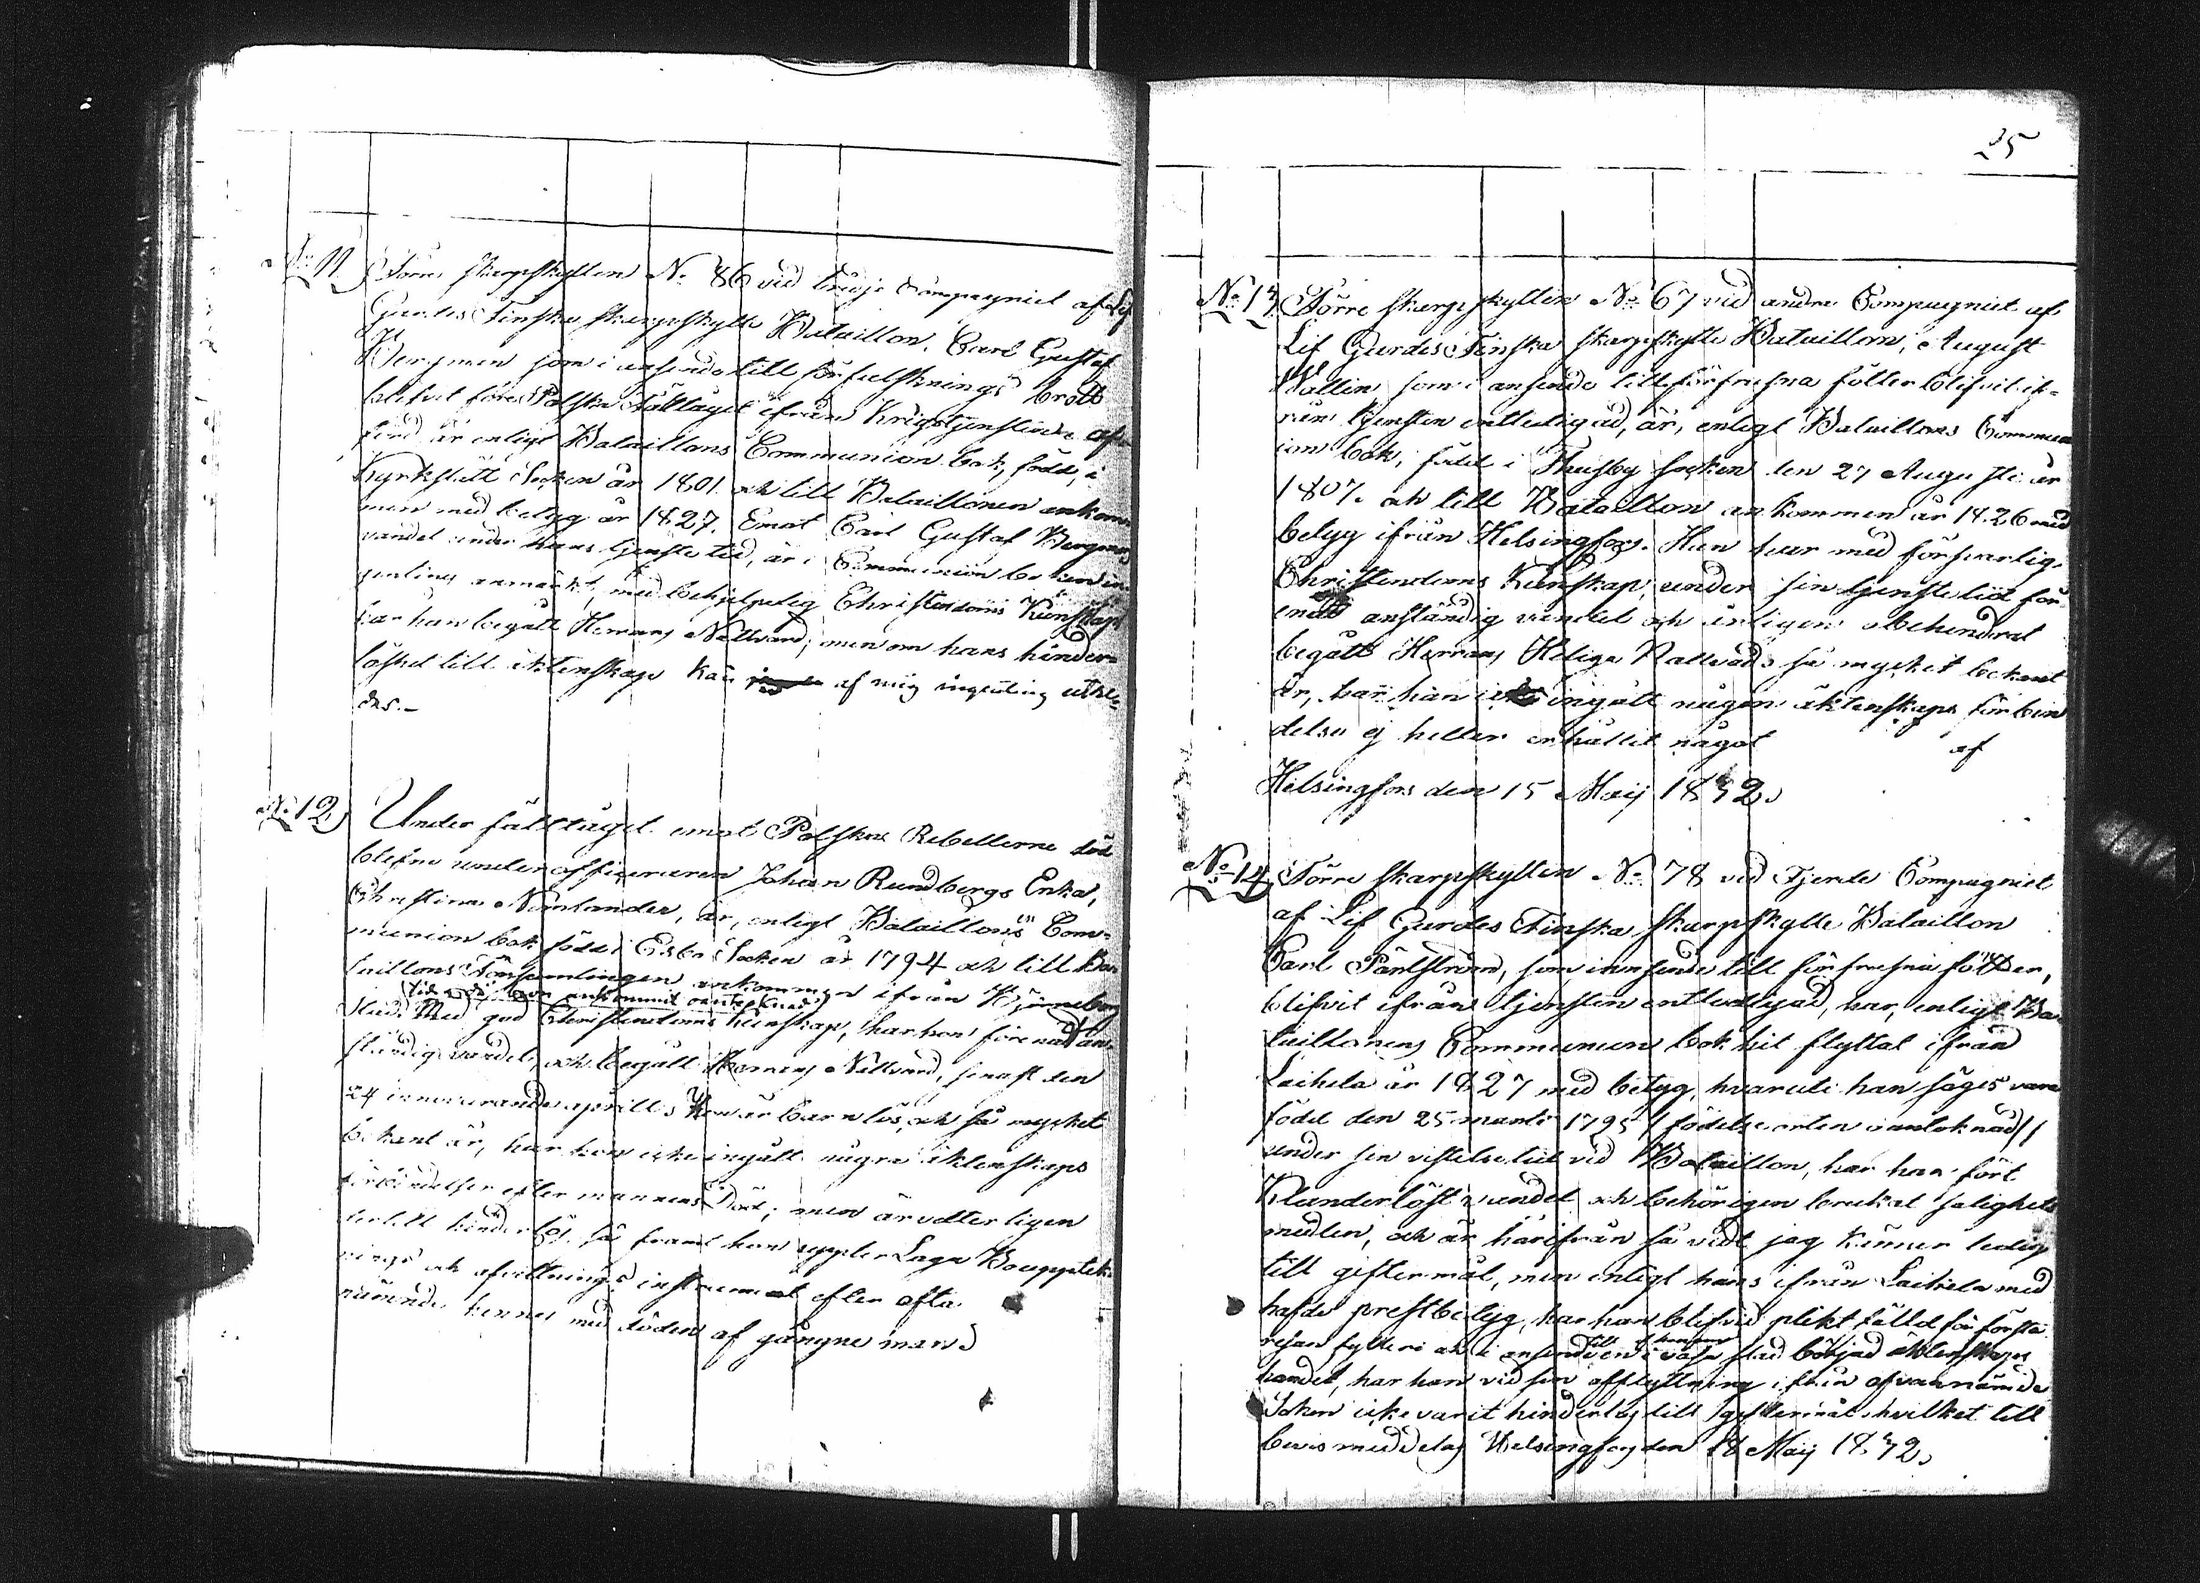 No 11. Förre Skarpskytten No 86 vid tredje Compagniet af Lif
Gardes Finska Skarpskytte Bataillon, Carl Gustaf
Bergman som i anseende till förfalsknings brott
blifvit före Polska Fälttåget ifrån Krigstjensten af-
förd är enligt Bataillons Communion bok, född i
Kyrkslätt Socken år 1801. och till Bataillonen ankom-
men med betyg år 1827. Emot Carl Gustaf Bergmans
vandel under hans tjenste tid, är i Communion boken in-
genting anmärkt, med behjelpelig Christendoms Kunskap
har han begått Herrans Nattvard; men om hans hinder-
löshet till äktenskap kan af mig ingenting utsä-
das.-
No 12. Under fälttåget emot Polska Rebellerne död
blefne underofficeraren Johan Rundbergs Enka,
Christina Nunlander, är, enligt Bataillons Com-
munion bok född i Esbo Socken år 1794 och till Ba-
taillons Församlingen ankommen ifrån Björneborgs
(tid då hon ankommit oantecknad)
Stad. Med god Christendoms kunskap, har hon förenat an-
ständig vandel, och begått Herrans Nattvard, senast den
24 innevarande april. Hon är barnlös, och så mycket
bekant är, har hon icke ingått några äktenskaps
förbindelser efter mannens död; men är ytterligen
dertill hinderlös så framt hon uppter Laga Bouppteck-
nings och afvittnings instrument efter ofta
nämnde hennes med döden afgångne man.
25
No 13 Förre Skarpskytten No 67 vid andra Compagniet af
Lif Gardes Finska Skarpskytte Bataillon, August
Wallin som i anseende till förfrusna fötter blifvit if-
rån tjensten entledigad, är, enligt Bataillons Commun-
ion bok, född i Thusby Socken den 27 Augusti år
1807. och till Bataillon ankommen år 1826 med
betyg ifrån Helsingfors. Han har med försvarlig
Christendoms Kunskap, under sin tjenste tid för-
enat anständig vandel och årligen obehindrat
begått Herrans Heliga Nattvard. så mycket bekant
är, har han icke ingått någon äktenskaps förbin
delse ej heller erhållit något af
Helsingfors den 15 Maij 1832.
No 14 Förre Skarpskytten No 78 vid Fjerde Compagniet
af Lif Gardes Finska Skarpskytte Bataillon
Carl Pärlström, som i anseende till förfrusna fötter,
blifvit ifrån tjensten entledigad, har, enligt Ba-
taillonens Communion bok hit flyttat ifrån
Laihela år 1827 med betyg, hvaruti han säges vara
född den 25 marti 1795 (födelse orten oantecknad)
under sin vistelse tid vid Bataillon, har han fört
Klanderlöst vandel och behörigen brukat salighets
medlen, och är härifrån så vidt jag känner ledig
till giftermål, men enligt hans ifrån Laihela med
hafde prestbetyg, har han blifvit plikt fälld för första
resan fylleri och i anseende till en i Vasa stad börjad äktenskaps
handel, har han vid sin afflyttning ifrån ofvannämde
Socken icke varit hinderlös till giftermål hvilket till
bevis meddelas Helsingfors den 18 Maij 1832.